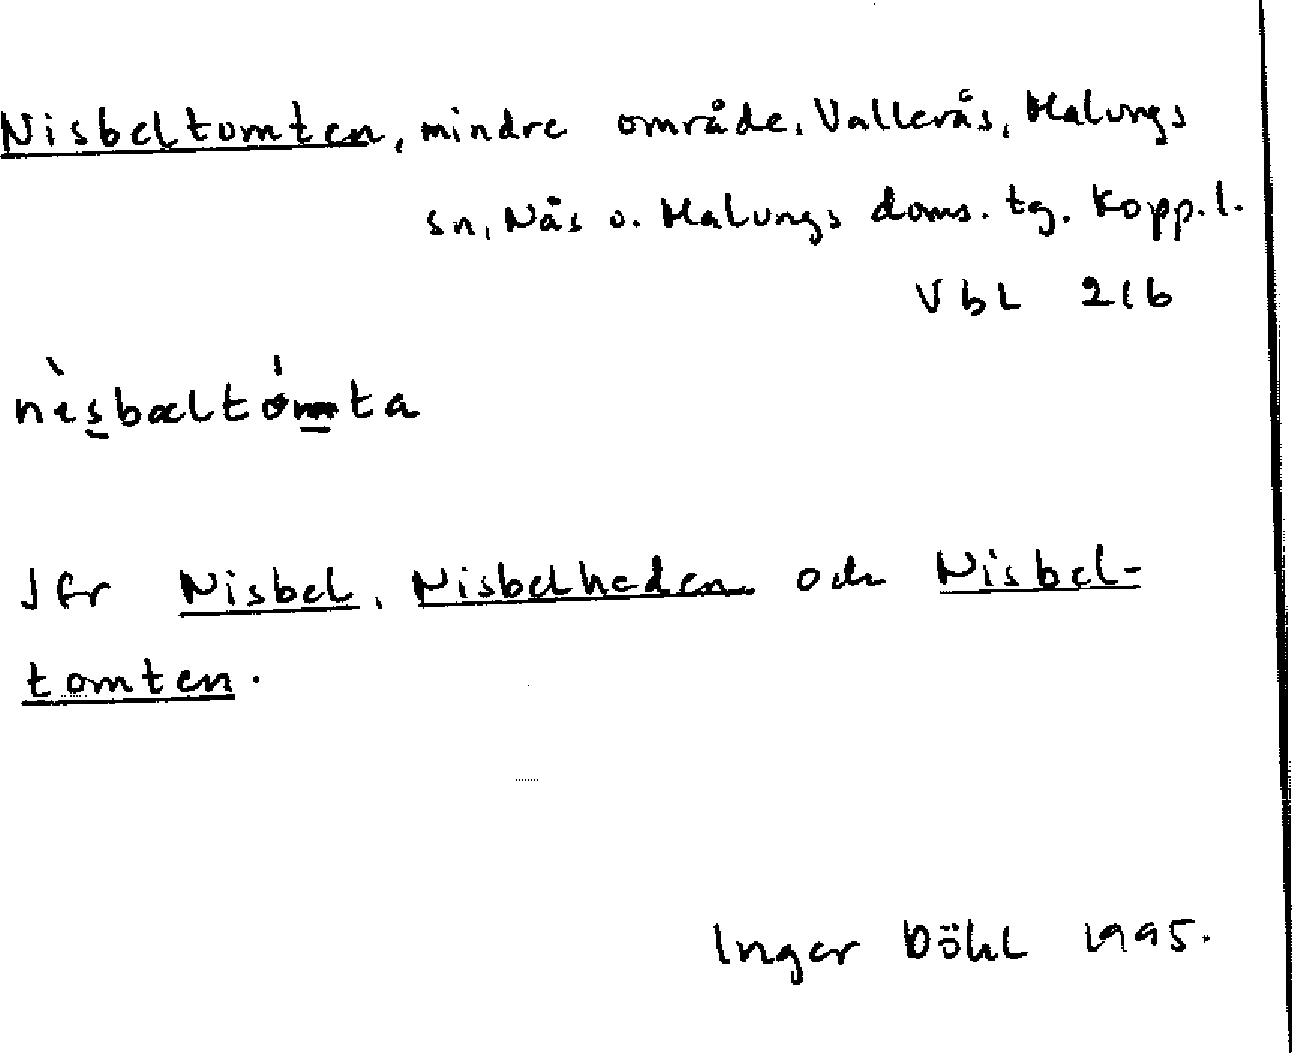 Nisbeltomten, mindre område, Vallerås, Malungs
sn, Nås o. Malungs doms. tg. Kopp. l.
VbL 216
nìsbæltómta
Jfr Nisbel, Nisbelheden och Nisbel-
tomten.
Inger Döhl 1995.